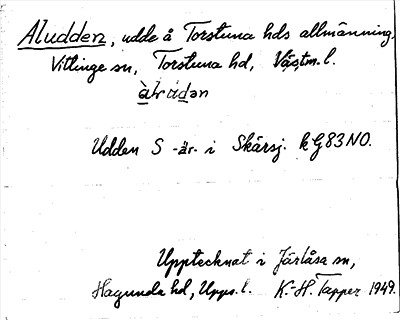 Aludden, udde å Torstuna hds allmänning.
Vittinge sn, Torstuna hd, Västm. l.
Udden S -är- i Skärsj. k G83NO.
Upptecknat i Järlåsa sn,
Hagunda hd, Upps. l. K.-H. Tapper 1949.